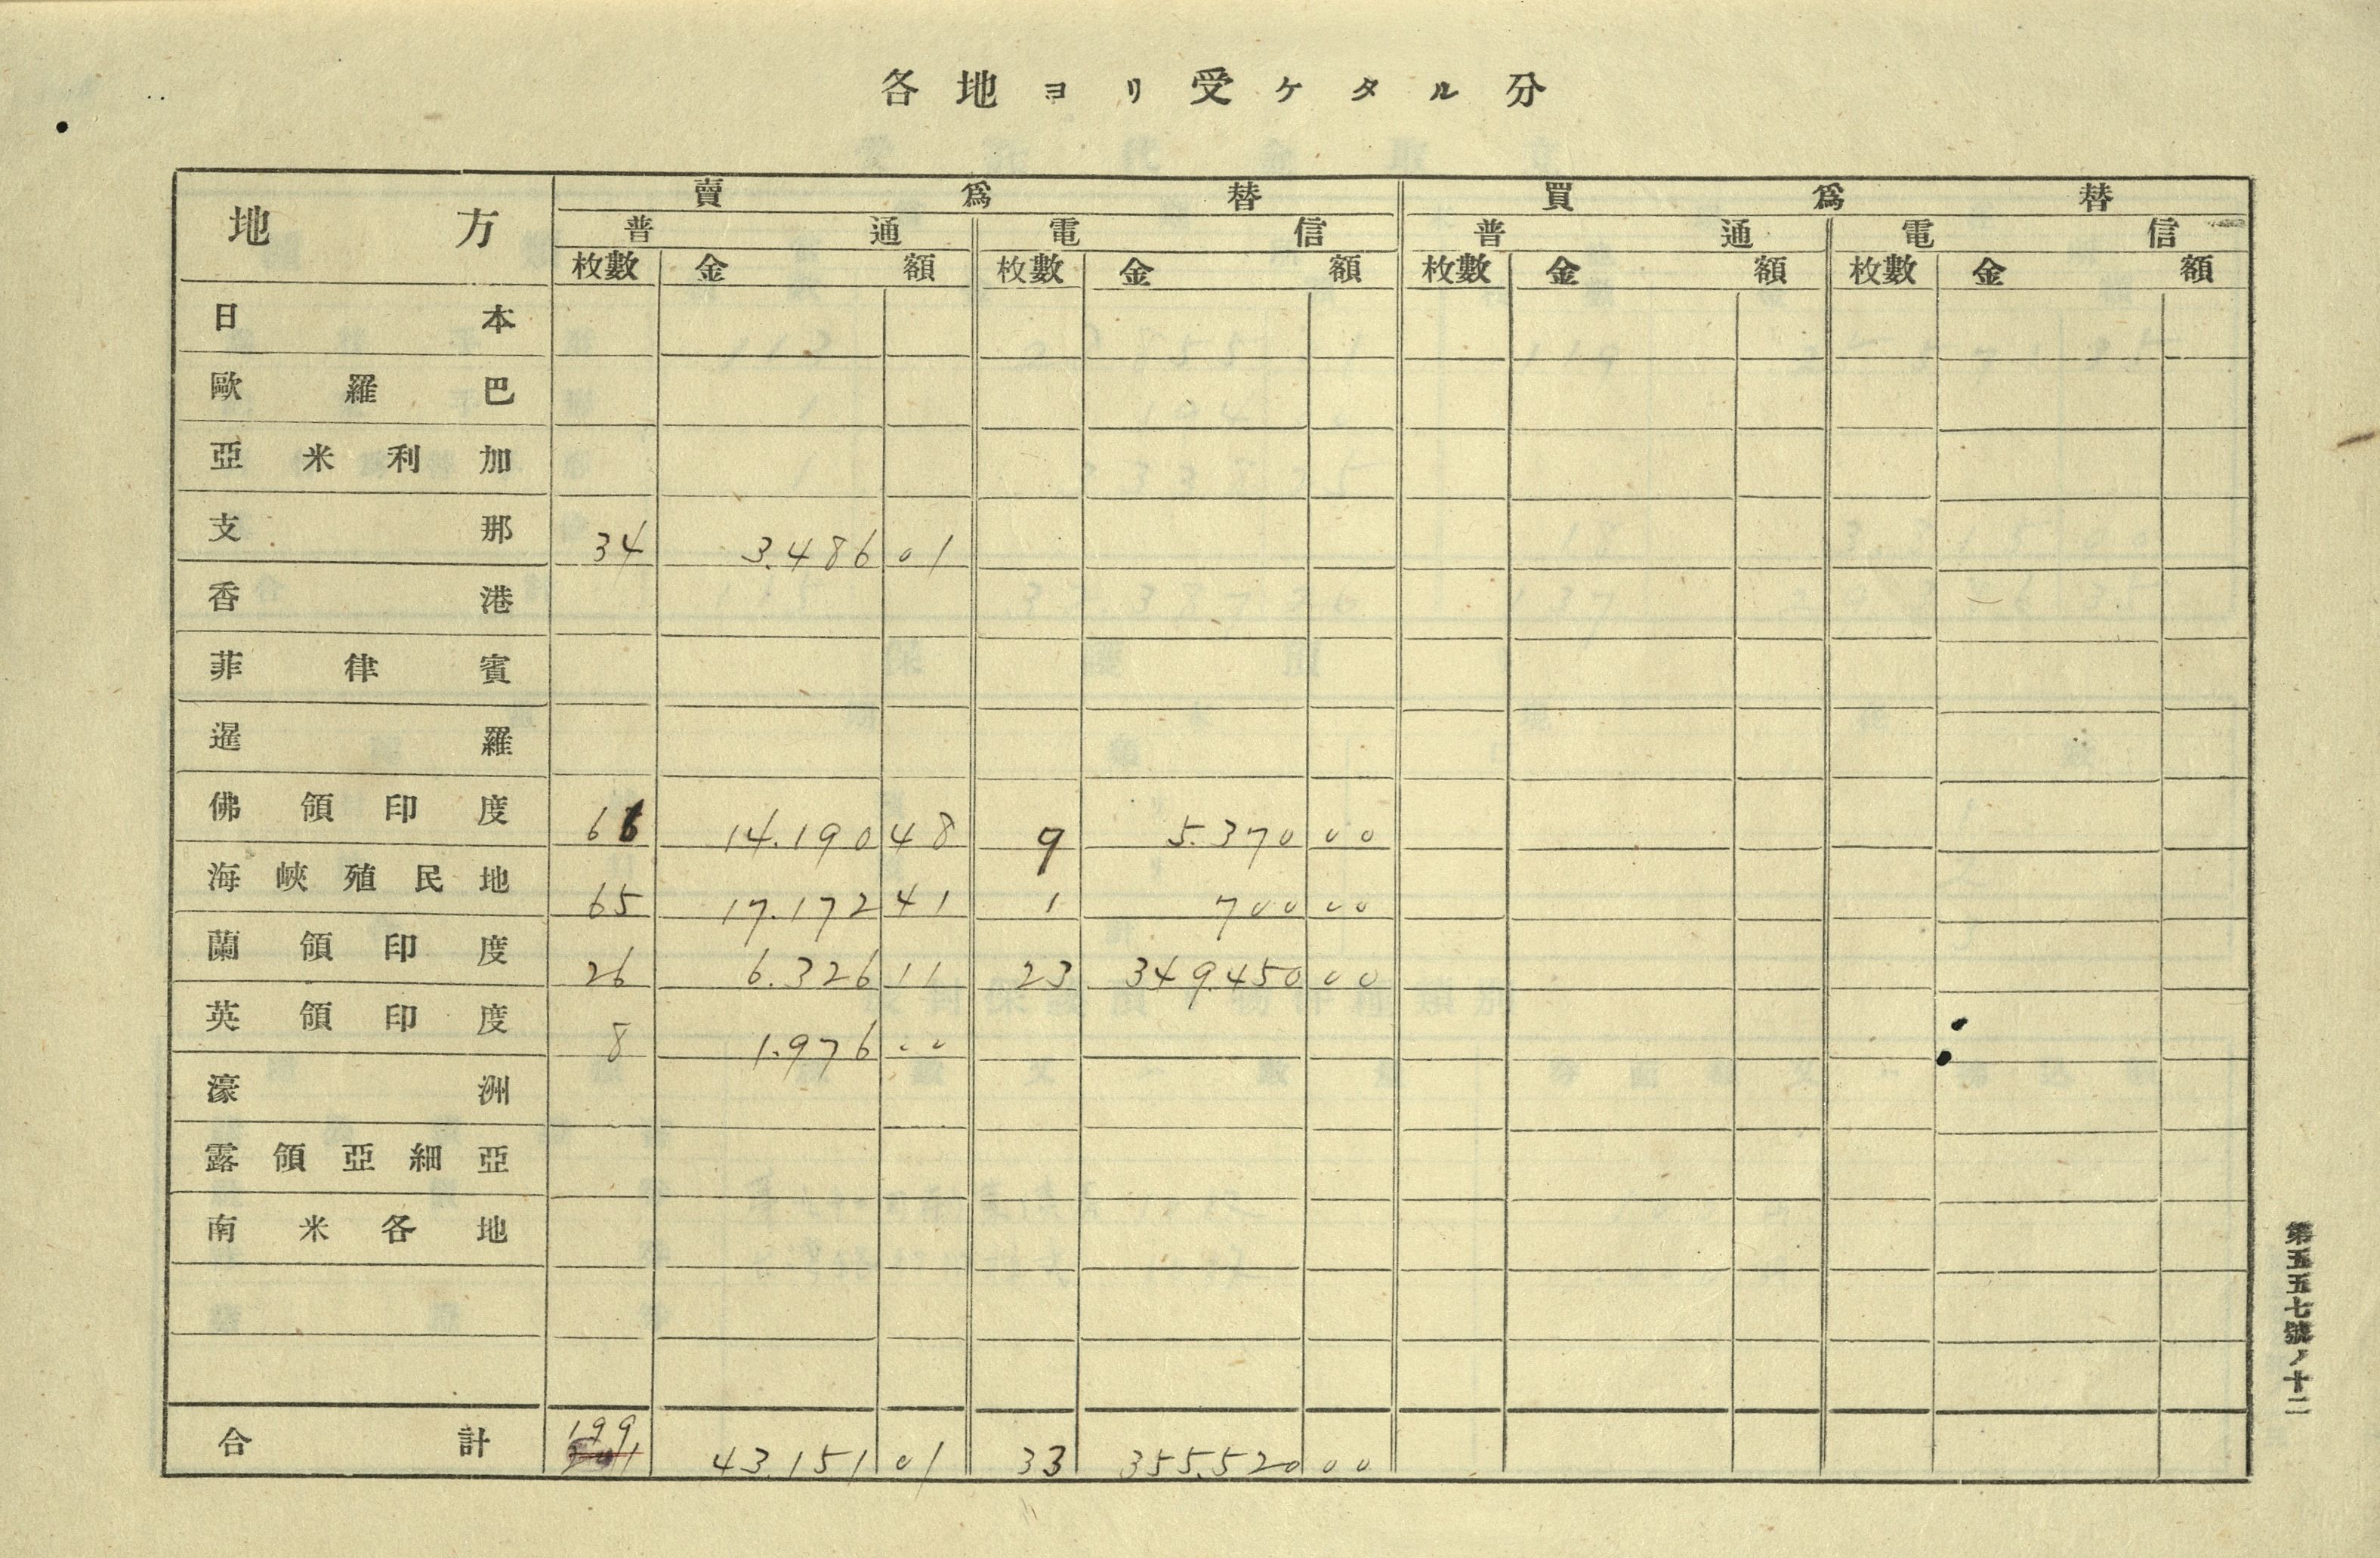 各地ヨリ受ケタル分
地方 賣爲替 買爲替
普通 電信 普通 電信
枚數 金額 枚數 金額 枚數 金額 枚數 金額
日本
歐羅巴
亞米利加
支那 34 3.486 01
香港
菲律賓
暹羅
佛領印度 66 14.190 48 9 5.370 00
海峽殖民地 65 17.172 41 1 700 00
蘭領印度 26 6.326 11 23 349.450 00
英領印度 8 1.976 00
濠洲
露領亞細亞
南米各地
199
合計 43.151 01 33 355.520 00
第五五七號ノ十二